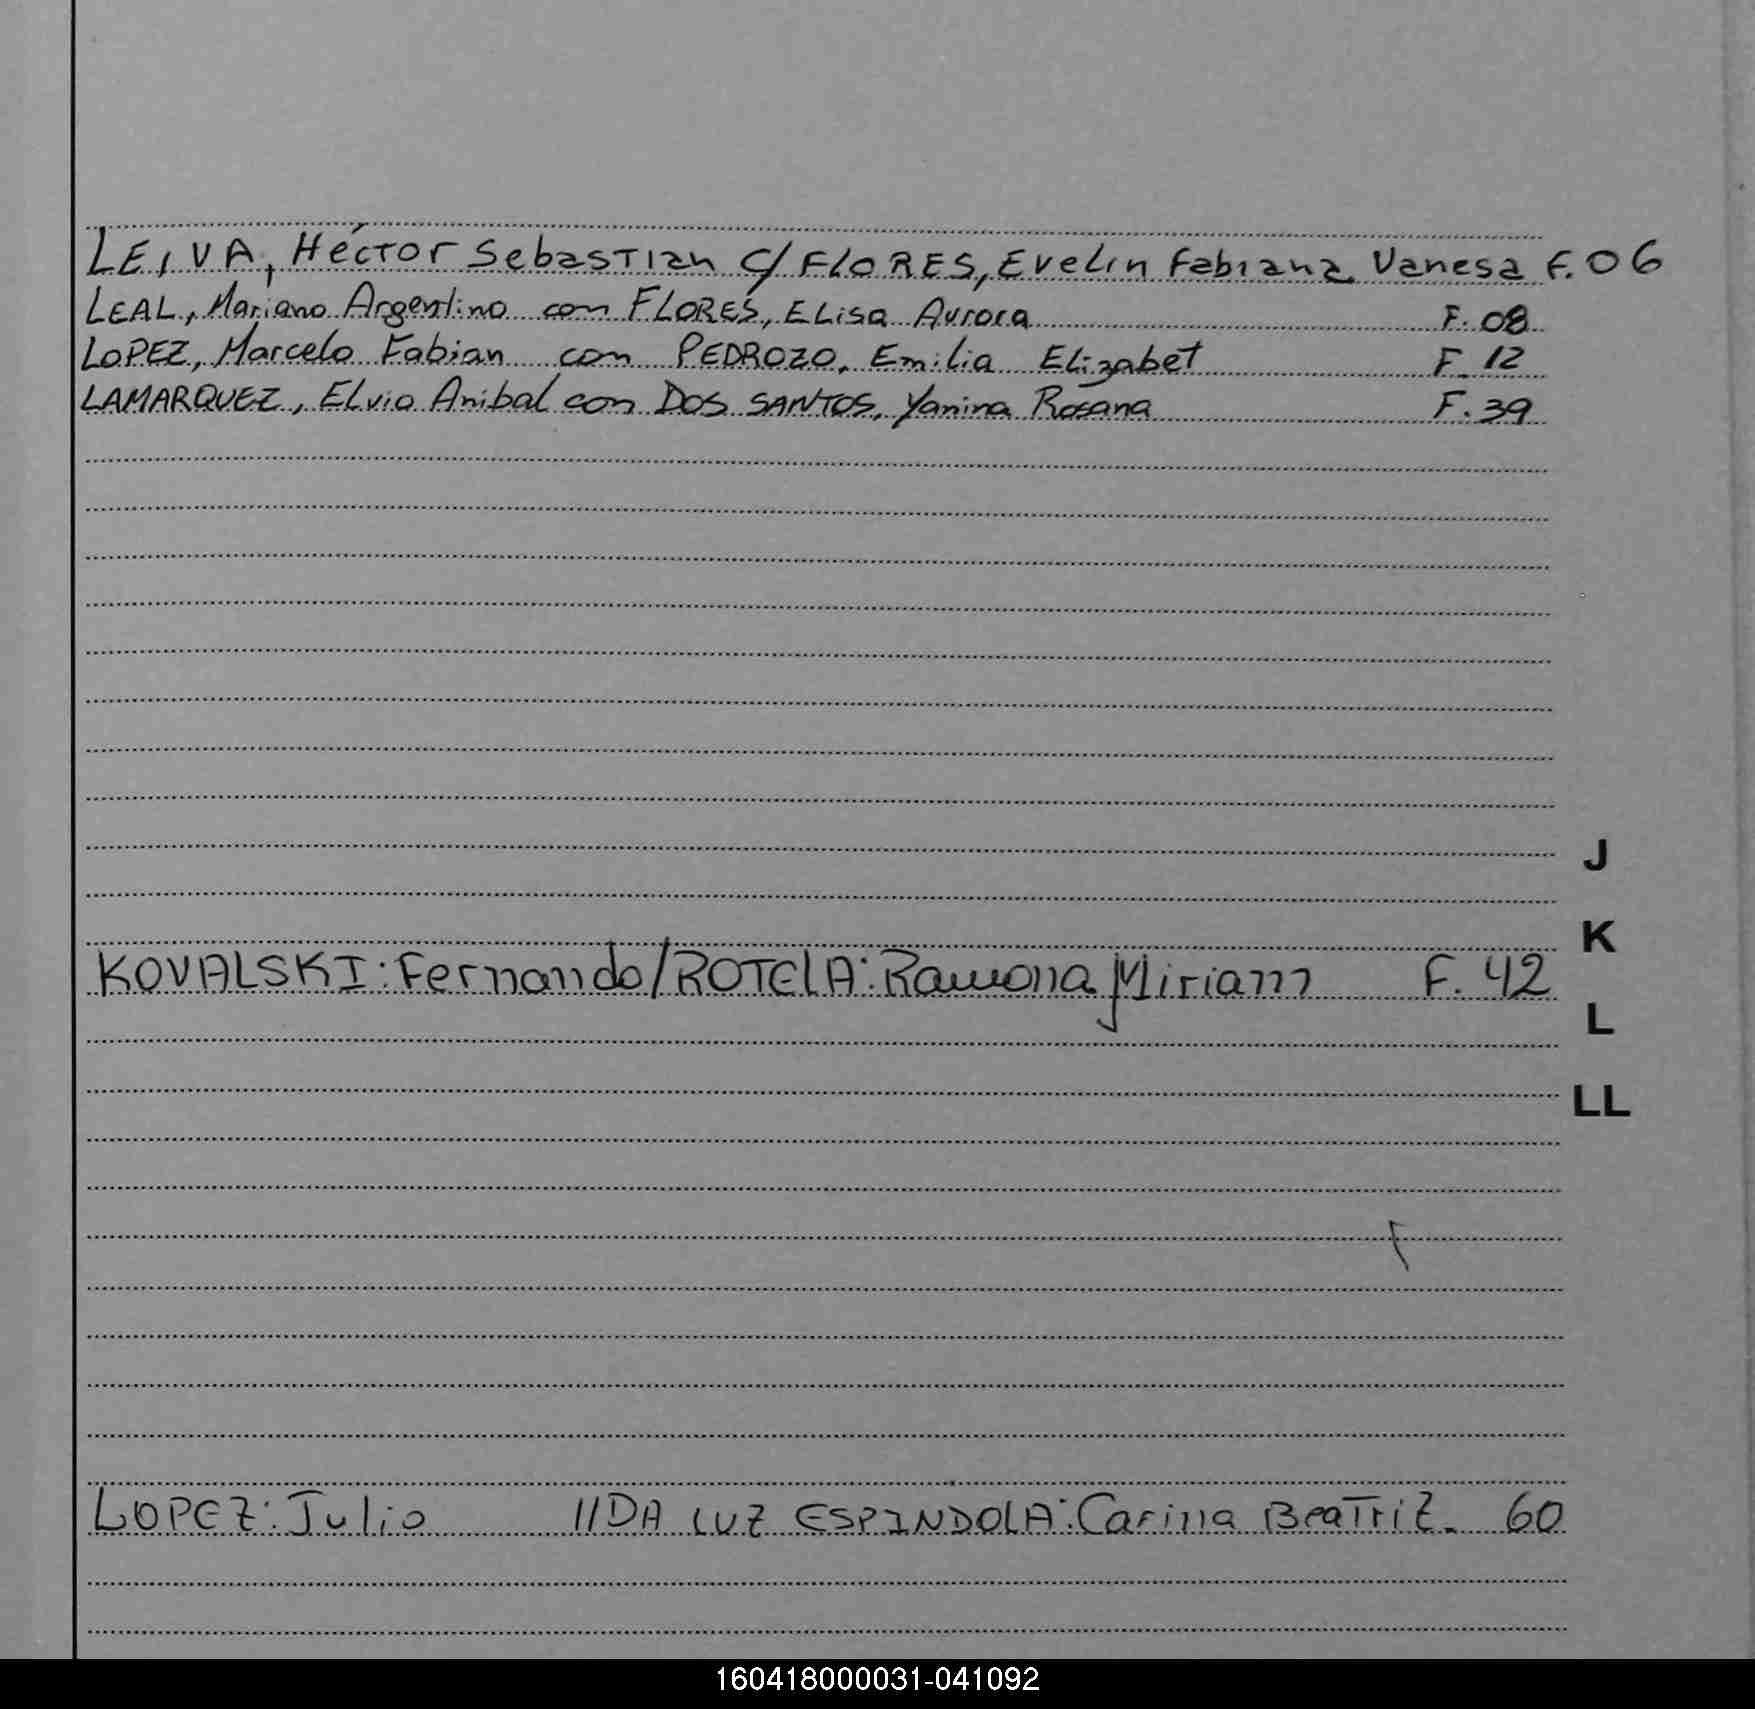 LEIVA, Héctor Sebastian C/ FLORES, Evelin Fabiana Vanesa F. 06
LEAL, Mariano Argentino con FLORES, ELisa Aurora F. 08
LOPEZ, Marcelo Fabian con PEDROZO, Emilia ELizabet F. 12
LAMARQUEZ, ELvio Anibal con DOS SANTOS, Yanina Rosana F. 39
J
K
KOVALSKI: Fernando/ROTELA: Ramona Miriam F. 42
L
LL
LOPEZ: Julio //DA LUZ ESPINDOLA: Carina BeaTriz. 60
160418000031-041092